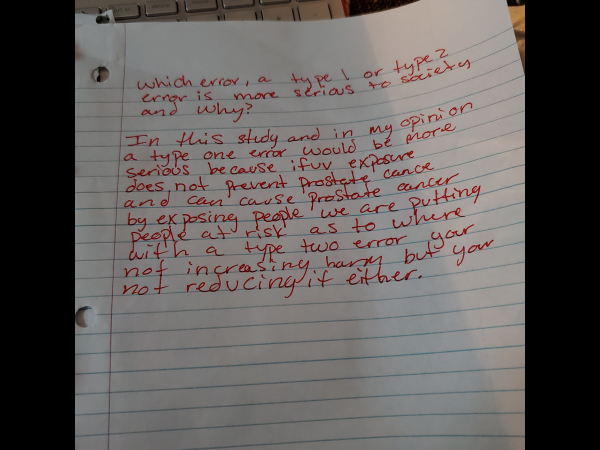 which error, a type 1 or type 2
error is more serious to society
and why?
In this study and in my opinion
a type one error would be more
serious because if uv exposure
does not prevent prostate cance
and can cause prostate cancer
by exposing people we are putting
people at risk as to where
with a type two error your
not increasing harm but your
not reducing it either.